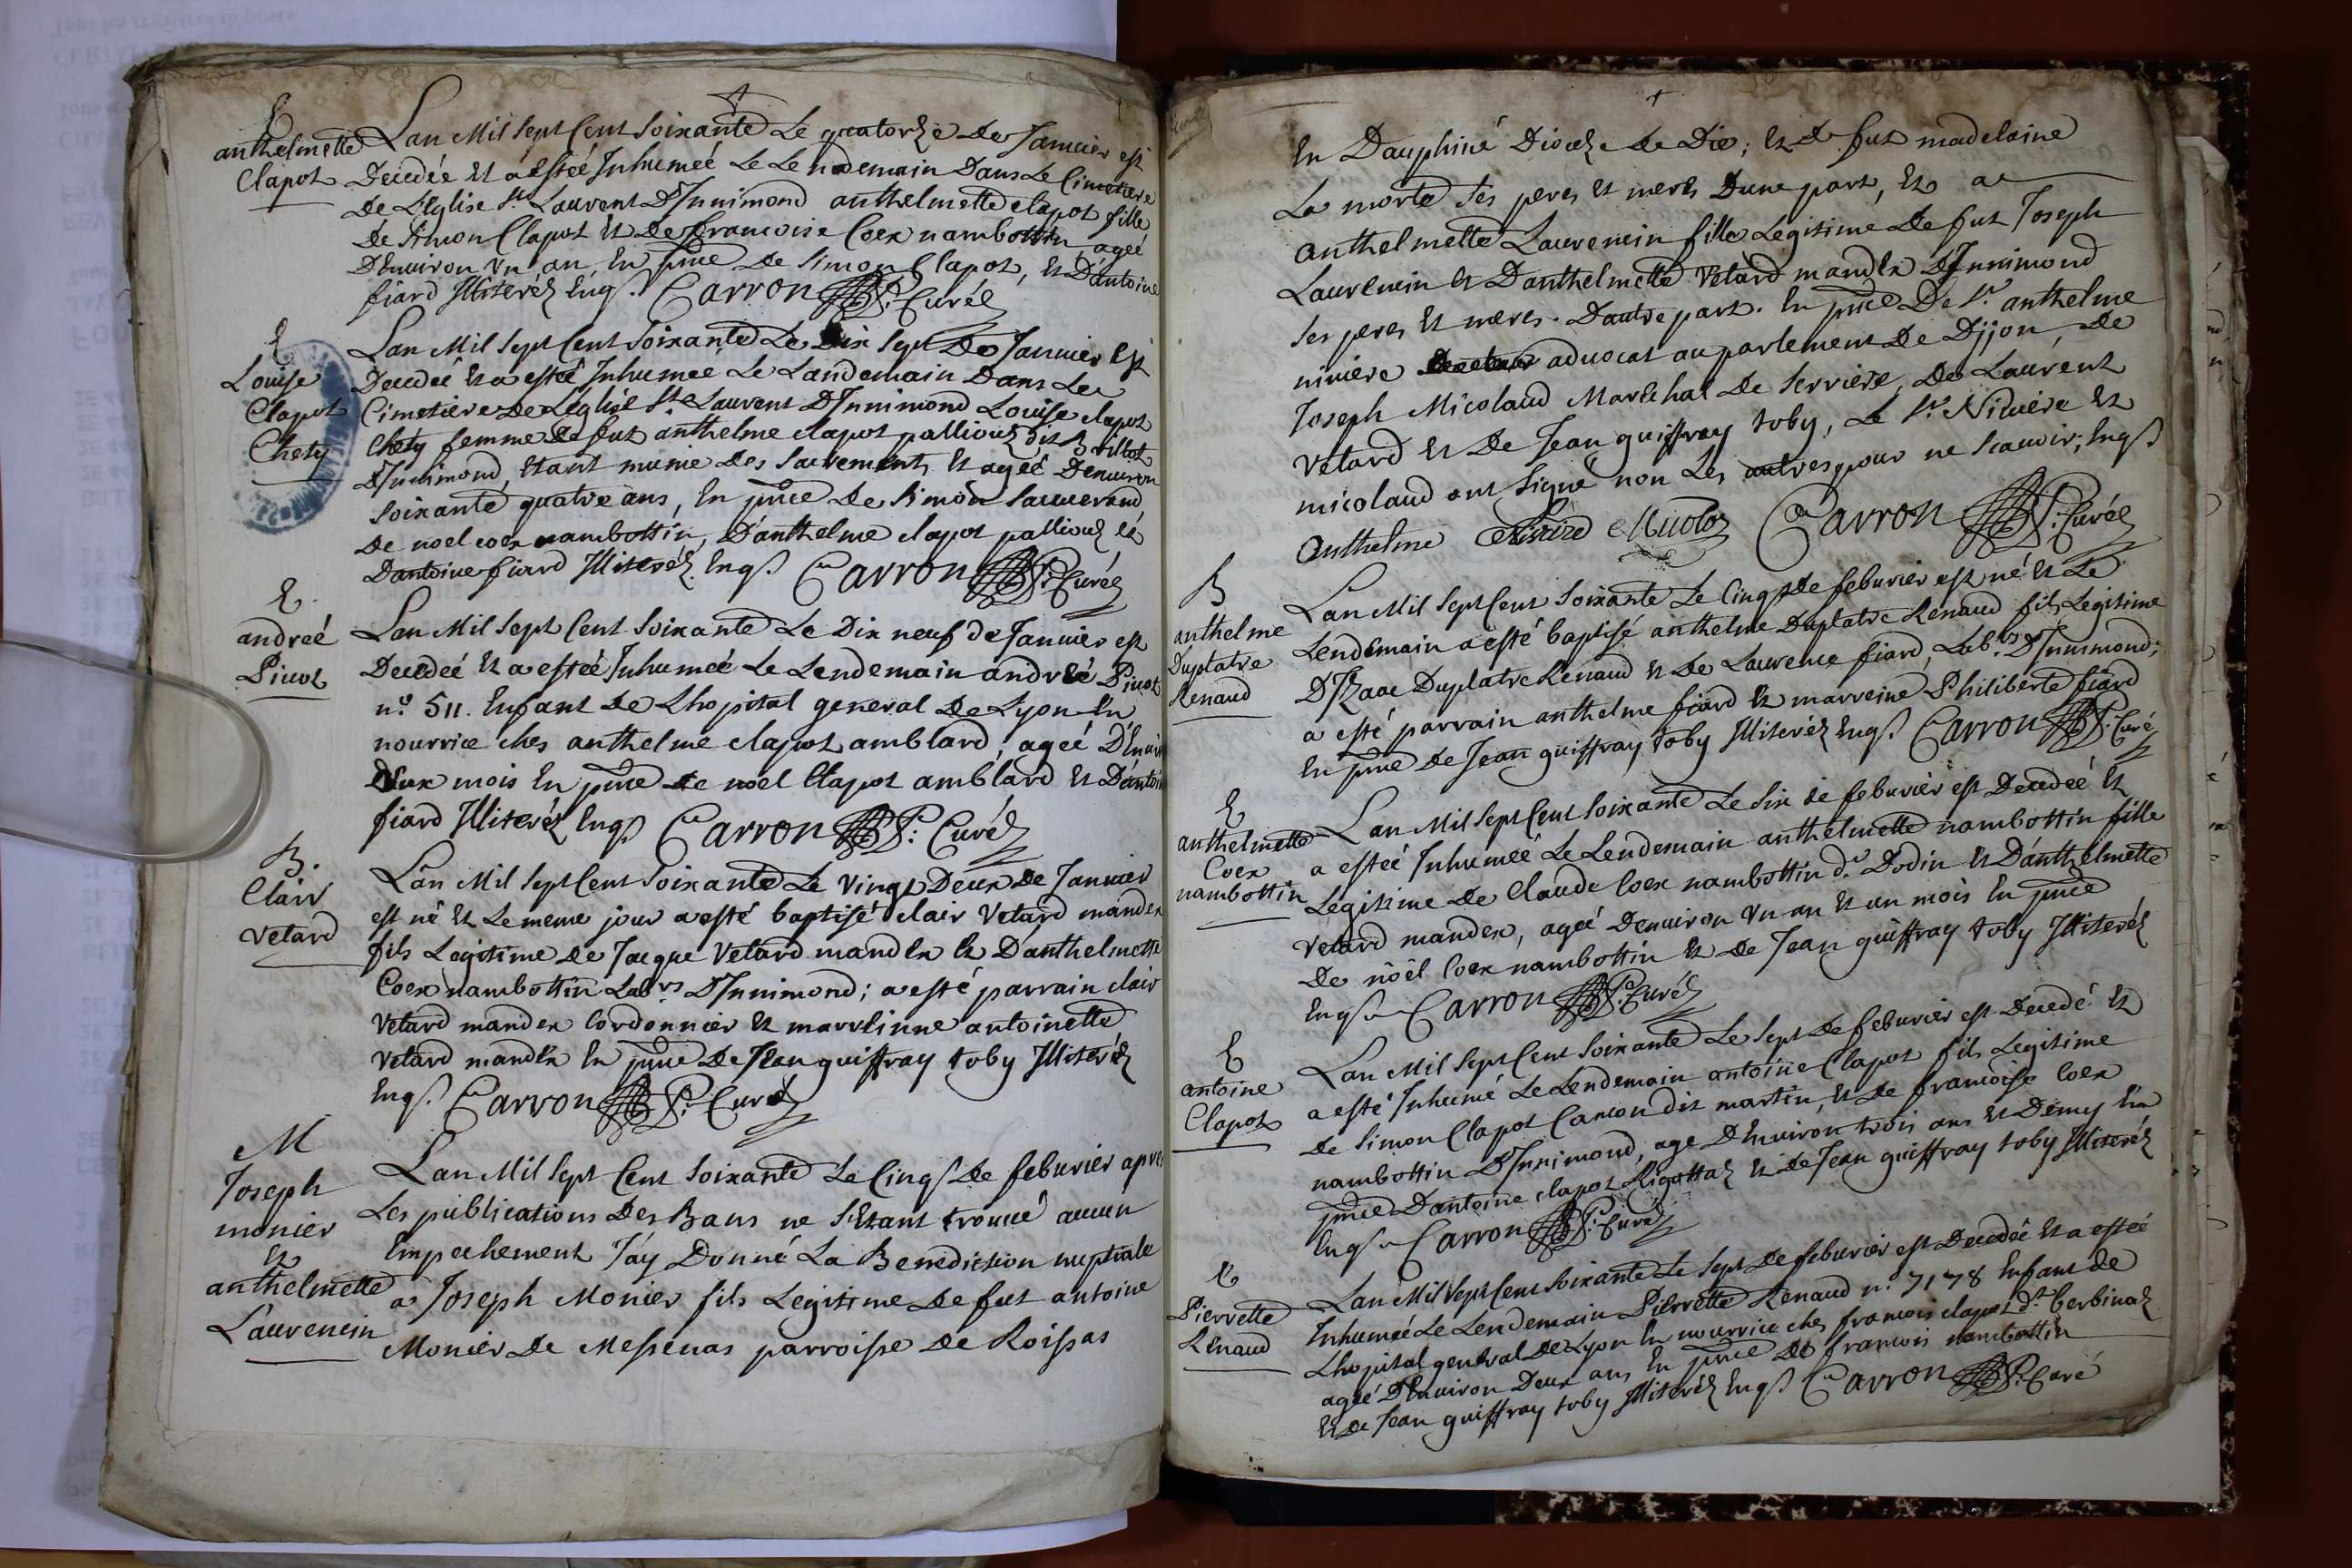 E
anthelmette
Clapot
Lan Mil Sept Cent Soixante Le quatorze de Januier est
Decedée Et a estée Inhumeé Le Lendemain Dans Le Cimetiere
De LEglise St Laurent DInnimond anthelmette clapot fille
De Simon Clapot Et De francoise Coex nambottin ageé
DEnuiron Vn an En pnce De Simon Clapot, Et Dantoine
fiard Illiteréz Enqs Carron Curéz
E
Louise
Clapot
Chety
Lan Mil Sept Cent Soixante Le Dix Sept De Januier Est
Decedeé Et a esteé Inhumeé Le Landemain Dans Le
Cimetiere De Leglise Laurent DInnimond Louise clapot
Chety femme De fut anthelme clapot palliouz dit Brillot
DInnimond, Etant munie Des Sacrements Et ageé Denuiron
Soixante quatre ans, En pnce De Simon Sauuerand,
De noel coex nambottin, Danthelme clapot palliouz Et
Dantoine fiard Illiteréz. Enqs Carron Curéz
E.
andreé
Picot
Lan Mil Sept Cent Soixante Le Dix neuf De Januier est
Decedeé Et a esteé Inhumeé Le Lendemain andreé Picot
n.o 511. Enfant De Lhopital general De Lyon En
nourrice ches anthelme clapot amblard, ageé DEnuir
Deux mois En pnce De noel Clapot amblard Et Dantoi
fiard Illiteréz Enqs Carron Curéz
B.
Clair
vetard
Lan Mil Sept Cent Soixante Le Vingt Deux De Januier
est né Et Le meme jour a esté baptisé clair Vetard mandex
fils Legitime De Jacque Vetard mandex Et Danthelmette
Coex nambottin Labrs DInnimond; a esté parrain clair
Vetard mandex Cordonnier Et marreinne antoinette
Vetard mandex En pnce De Jean guiffray toby Illiteréz
Enqs Carron Curéz
M
Joseph
monier
Et
anthelmette
Laurencin
Lan Mil Sept Cent Soixante Le Cinqs De feburier apres
Les publications Des Bans ne SEtant trouué aucun
Empechement Jáy Donné La Benediction nuptiale
a Joseph Monier fils Legitime De fut antoine
Monier De Messenas parroisse De Roissas
En Dauphiné Diocéze De Die; Et De fut madelaine
La morte Ses peres Et meres Dune part, Et a
anthelmette Laurencin fille Legitime De fut Joseph
Laurencin Et Danthelmette Vetard mandex DInnimond
Ses peres Et meres. Dautre part. En pnce De Sr anthelme
niuiere aduocat au parlement De Dijon, De
Joseph Micolaud Marechal De Serriere, De Laurent
Vetard Et De Jean guiffray toby, Le Sr Niuiere Et
micolaud ont Signé non Les autres pour ne Scauoir; Enqs
Anthelme Carron Curéz
B
anthelme
Duplatre
Renaud
Lan Mil Sept Cent Soixante Le Cinqs De feburier est né Et Le
Lendemain a esté baptisé anthelme Duplatre Renaud fils Legitime
DIzaac Duplatre Renaud Et De Laurence fiard, Labrs DInnimond;
a esté parrain anthelme fiard Et marreine Philiberte fiard
En pnce De Jean guiffray toby Illiteréz Enqs Carron Curé
E
anthelmette
Coex
nambottin
Lan Mil Sept Cent Soixante Le Six de feburier est Decedeé Et
a esteé Inhumeé Le Lendemain anthelmette nambottin fille
Legitime De Claude Coex nambottin dt Dodin Et Danthelmette
Vetard mandex, ageé Denuiron Vn an Et un mois En pnce
De noël Coex nambottin Et De Jean guiffray toby Illiteréz
Enqs Carron Curéz
E
antoine
Clapot
Lan Mil Sept Cent Soixante Le Sept De feburier est Decedé Et
a esté Inhumé Le Lendemain antoine Clapot fils Legitime
De Simon Clapot Camon dit martin, Et De francoise Coex
nambottin DInnimond, age DEnuiron trois ans Et Demy En
pnce Dantoine clapot Rigottaz Et De Jean guiffray toby Illiteréz
Enqs Carron Curéz
E
Pierrette
Renaud
Lan Mil Sept Cent Soixante Le Sept De feburier est Decedeé Et a esteé
Inhumeé Le Lendemain Pierrette Renaud n.o 7178 Enfant de
Lhopital general De Lyon En nourrice ches francois clapot dt Gerbinaz
ageé DEnuiron Deux ans En pnce De francois nambottin
Et De Jean guiffray toby Illiteréz Enqs Carron Curé